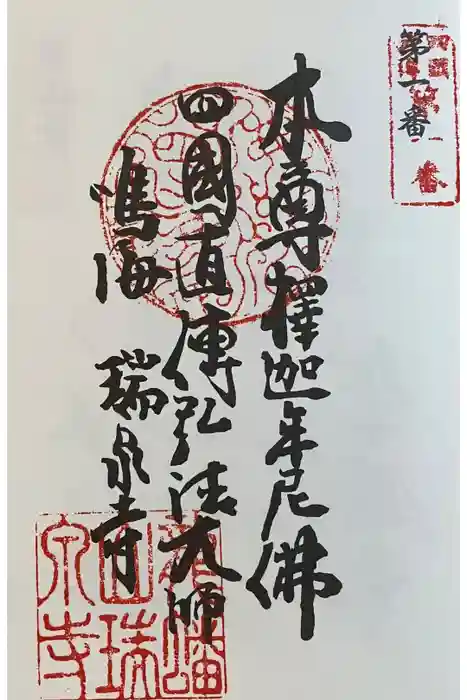 第一番
本尊釋迦牟尼佛
四國直傳弘法大師
鳴海
瑞泉寺
龍蟠
山瑞
泉寺